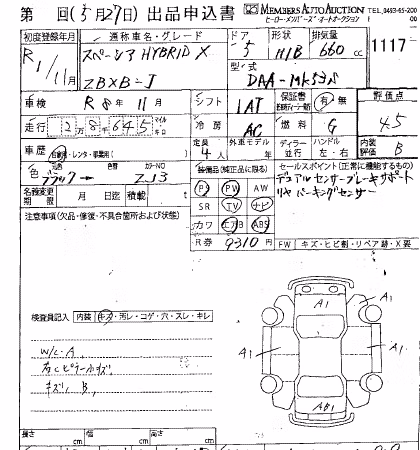 第 回(5月27日)出品申込書
MEMBERS AUTO AUCTION
ヒーロー・メンバーズ・オートオークション TEL.0493-65-200
初度登録年月 通称車名・グレード ドア 形状 排気量
R1/11月 スペーシア HYBRID X 5 H/B 660cc 1117
ZBXB-J 型式 DAA-MK53S
車検 R8年11月 シフト IAT 保証書 有・無 評価点
走行 2万8千645 マイル キロ 冷房 AC 燃料 G 4.5
車歴 自家用・レンタ・事業用( ) 定員 4人 外車モデル 年 ディーラー 並行 ハンドル 左・右 内装評価 B
色 ブラック カラーNO ZJ3 装備品(純正品に限る) セールスポイント(正常に機能するもの)
名義変更期限 月 日迄 積載 PS PW AW デュアルセンサーブレーキサポート
SR TV ナビ リヤパーキングセンサー
注意事項(欠品・修復・不具合箇所および状態) カワ エアB ABS
R券 9310円 FW キズ・ヒビ割・リペア跡・X要
検査員記入 内装 キズ・汚レ・コゲ・穴・スレ・キレ
W/C.A
右Cピラーガーニ
キズ B
A1
A1
A1
A1
A1
AB1
長さ 幅 高さ
cm cm cm